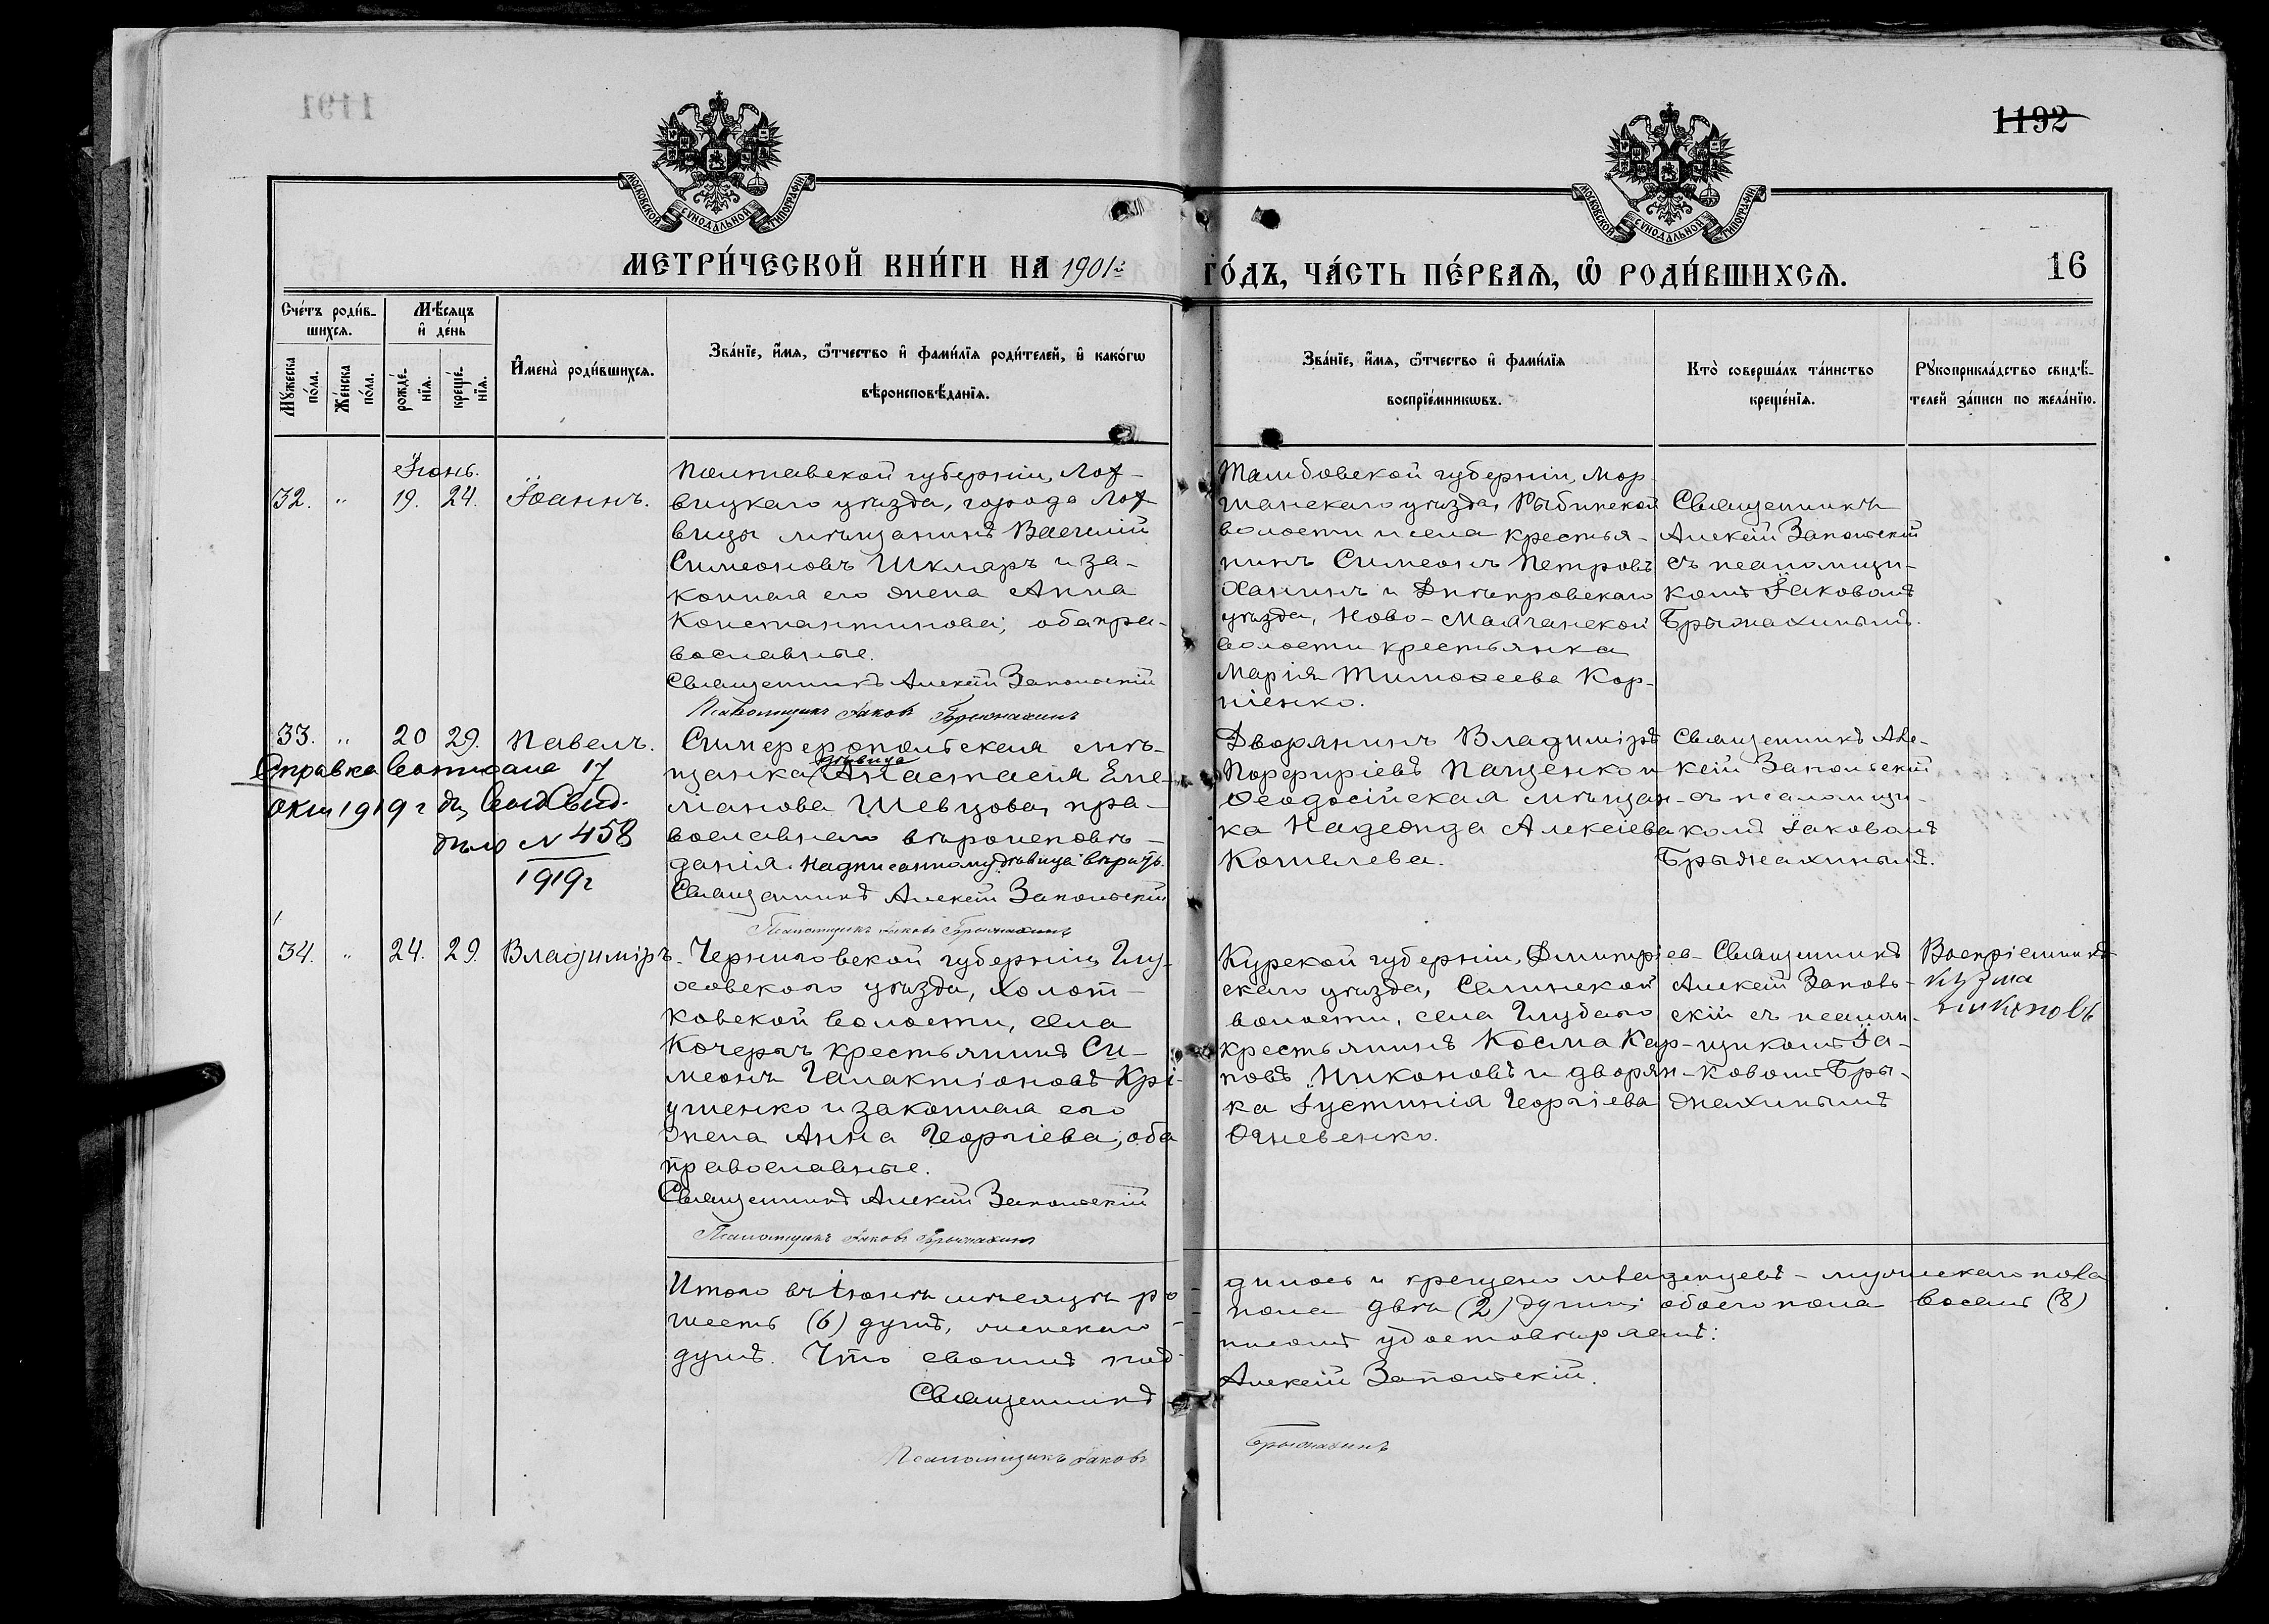 1191
1192
МОСКОВСКОЙ СѴНОДАЛЬНОЙ ТИПОГРАФІИ
МОСКОВСКОЙ СѴНОДАЛЬНОЙ ТИПОГРАФІИ
МЕТРИ́ЧЕСКОЙ КНИ́ГИ НА 1901й
ГО́ДЪ, ЧА́СТЬ ПЕ́РВАѦ, Ѡ РОДИ́ВШИХСѦ.
16
Сче́тъ роди́в-
шихсѧ.
Мꙋ́жеска по́ла.
Же́нска по́ла.
Мѣ́сѧцъ
и҆ де́нь
рожде́-
нїѧ.
креще́-
нїѧ.
И҆мена̀ роди́вшихсѧ.
Зва́нїе, и҆́мѧ, ѻ҆́тчество и҆ фами́лїѧ роди́телей, и҆ како́гѡ
вѣроисповѣ́данїѧ.
Зва́нїе, и҆́мѧ, ѻ҆́тчество и҆ фами́лїѧ
воспрїе́мникѡвъ.
Кто̀ соверша́лъ та́инство
креще́нїѧ.
Рꙋкоприкла́дство свидѣ́-
телей за́писи по жела́нїю.
Іюнь.
32. " 19. 24. Іоаннъ.
Полтавской губерніи, Лох-
вицкаго уѣзда, города Лох-
вицы мѣщанинъ Василій
Симеоновъ Шкляръ и за-
конная его жена Анна
Константинова; оба пра-
вославные.
Священникъ Алексій Запольскій
Псаломщикъ Іаковъ Брыжахинъ
Тамбовской губерніи, Мор-
шанскаго уѣзда, Рыбинской
волости и села крестья-
нинъ Симеонъ Петровъ
Ханинъ и Днѣпровскаго
уѣзда, Ново-Маячанской
волости крестьянка
Марія Тимоѳеева Кор-
ніенко.
Священникъ
Алексій Запольскій
съ псаломщи-
комъ Іаковомъ
Брыжахинымъ.
33. " 20 29. Павелъ.
Справка 17
окт 1919 г
дѣло № 458
1919 г
Симферопольская мѣ-
дѣвица
щанка Анастасія Еме-
ліанова Шевцова, пра-
вославнаго вѣроисповѣ-
данія. Надписанному "дѣвица" вѣрить.
Священникъ Алексій Запольскій
Псаломщикъ Іаковъ Брыжахинъ
Дворянинъ Владиміръ
Порфиріевъ Пащенко и
Ѳеодосійская мѣщан-
ка Надежда Алексіева
Кошелева.
Священникъ Але-
ксій Запольскій
съ псаломщи-
комъ Іаковомъ
Брыжахинымъ.
34. " 24. 29. Владиміръ.
Черниговской губерніи, Глу-
ховскаго уѣзда, Холоп-
ковской волости, села
Кочергъ крестьянинъ Си-
меонъ Галактіоновъ Крі-
ушенко и законная его
жена Анна Георгіева; оба
православные.
Священникъ Алексій Запольскій
Псаломщикъ Іаковъ Брыжахинъ
Курской губерніи, Дмитріев-
скаго уѣзда, Селинской
волости, села Глубаго
крестьянинъ Косма Кар-
повъ Никоновъ и дворян-
ка Іустинія Георгіева
Огневенко.
Священникъ
Алексій Заполь-
скій съ псалом-
щикомъ Іа-
ковомъ Бры-
жахинымъ
Воспріемникъ
Кузма
Никоновъ
Итого въ іюнѣ мѣсяцѣ ро-
дилось и крещено младенцевъ - мужескаго пола
шесть (6) душъ, женскаго -
пола двѣ (2) души; обоего пола восемь (8)
душъ. Что своимъ под-
писомъ удостовѣряемъ:
Священникъ
Алексій Запольскій.
Псаломщикъ Іаковъ
Брыжахинъ